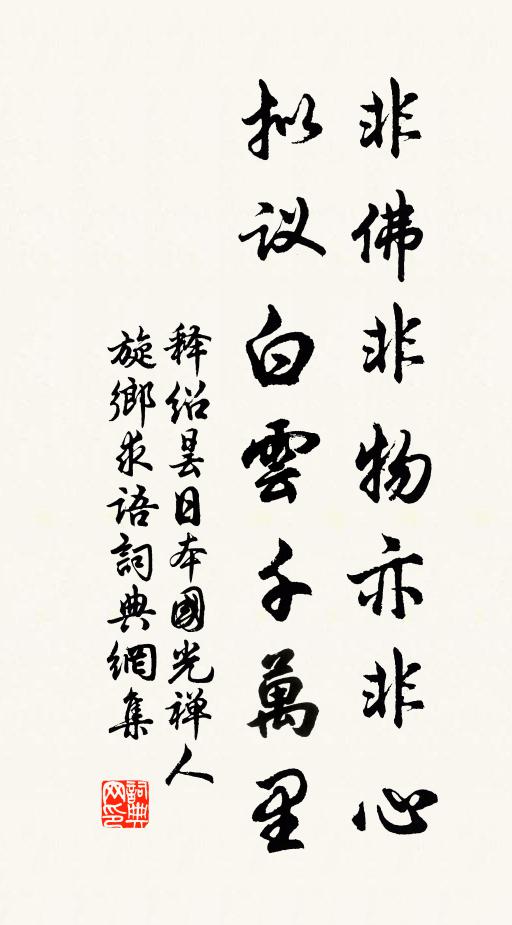 非佛非物亦非心
拟议白雲千萬里
释绍昙日本國光禅人
旋鄉求语詞典網集
詞典网印